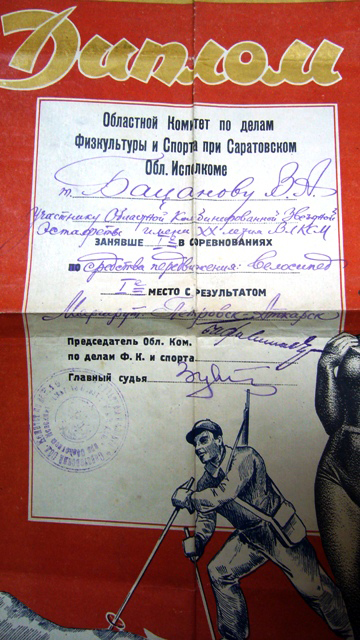 Диплом
Областной Комитет по делам
Физкультуры и Спорта при Саратовском
Обл. Исполкоме
т. Бацанову В.А.
Участнику Областной Комбинированной Звездной
Эстафеты имени XX-летия ВЛКСМ
занявше I ое в соревнованиях
по средства передвижения: велосипед
I ое место с результатом
Маршрут Петровск-Аткарск
Председатель Обл. Ком.
по делам Ф. К. и спорта
Главный судья